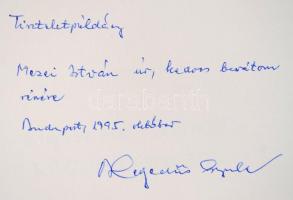 Tiszteletpéldány
Mezei István úr, kedves barátom
részére
Budapest, 1995. október
Hegedűs Gyula